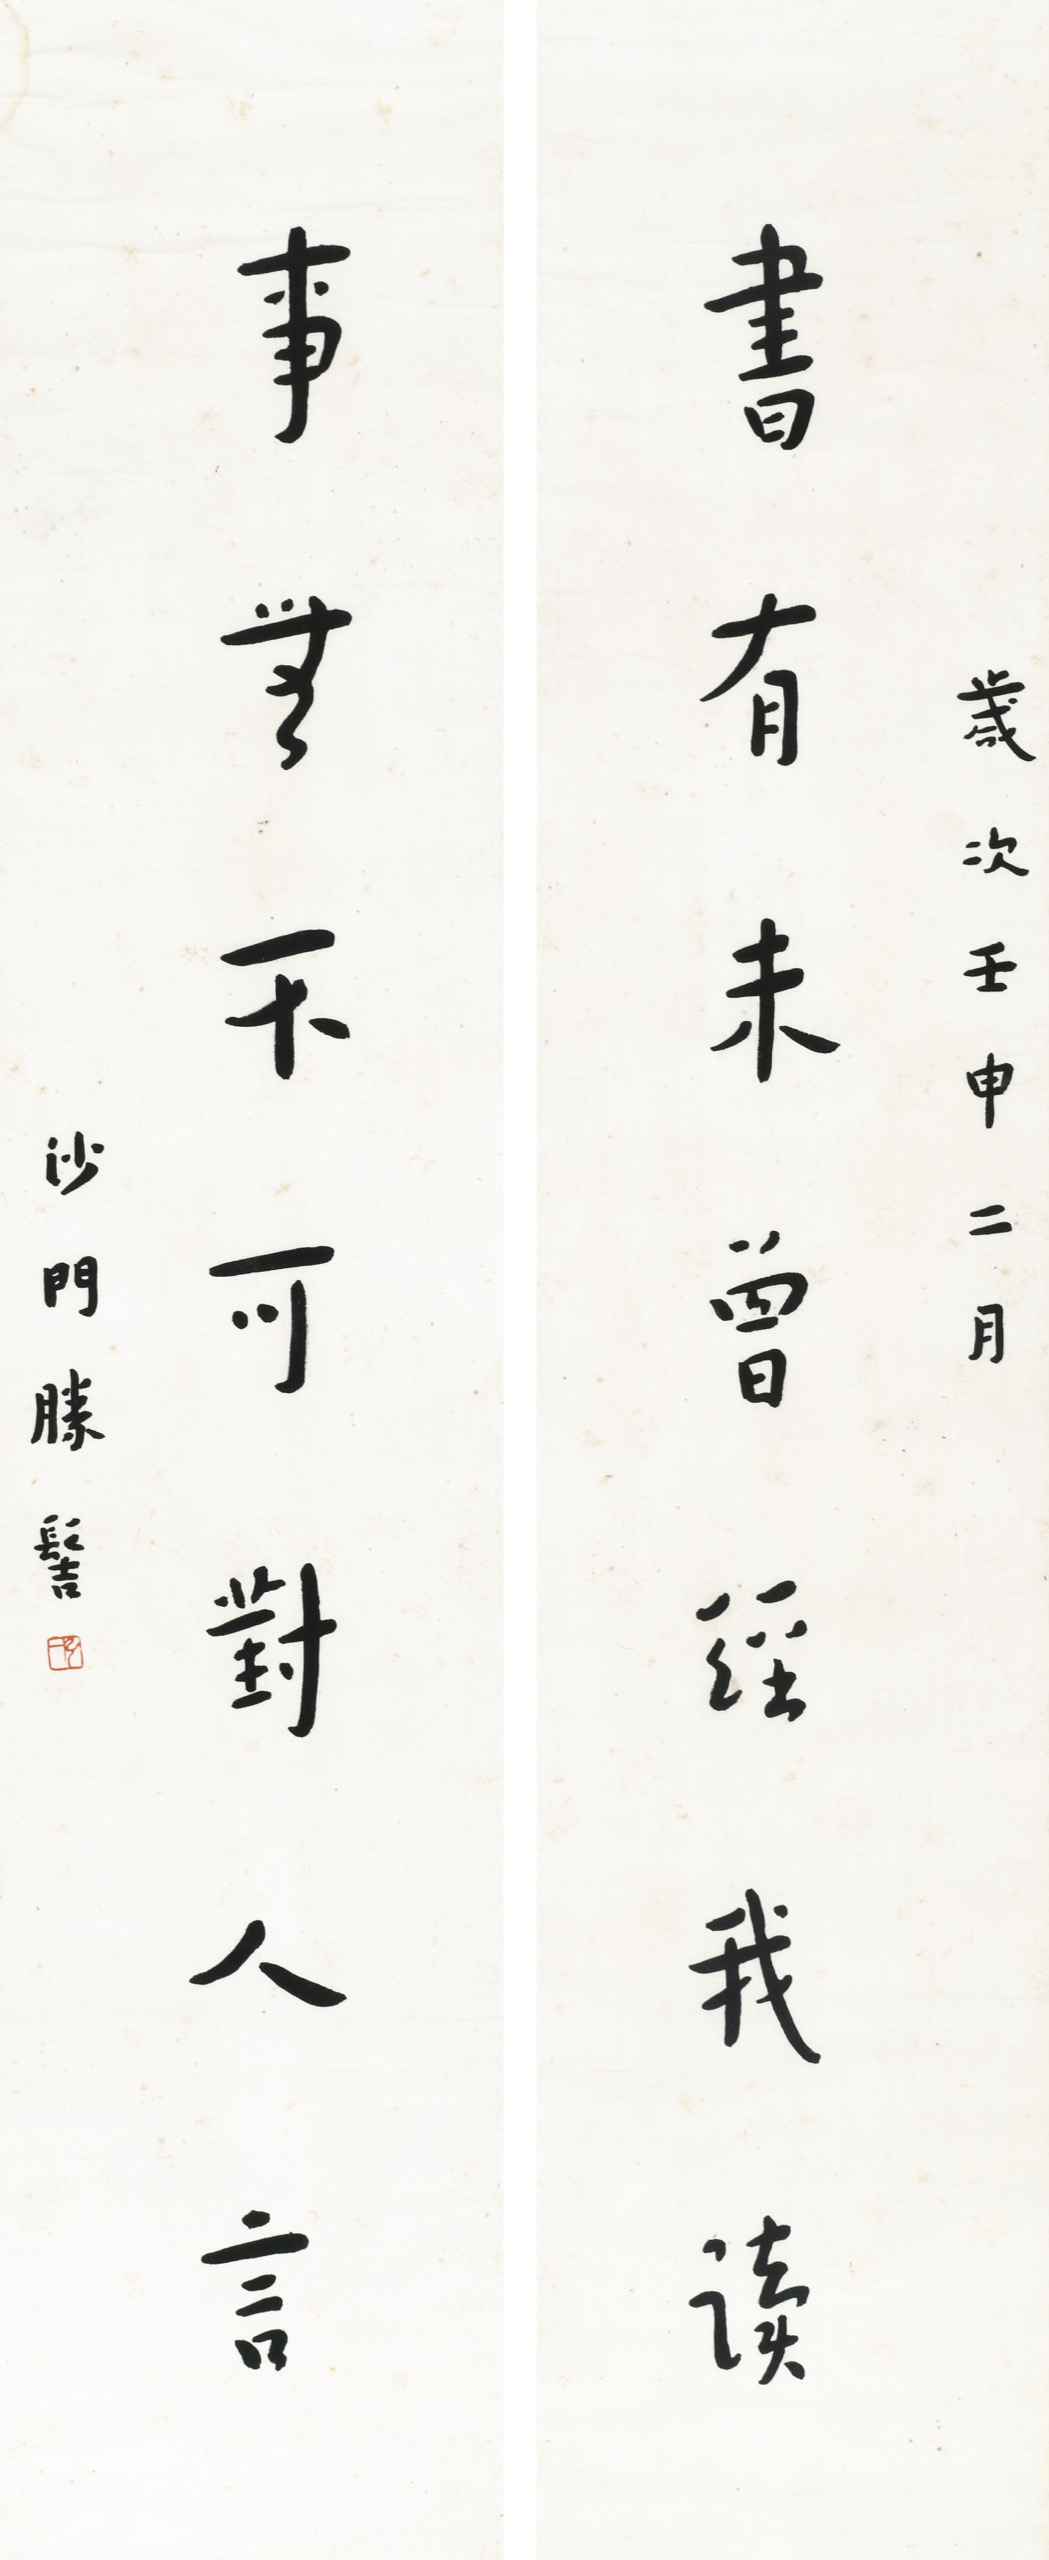 歲次壬申二月
書有未曾經我讀
事無不可對人言
沙門勝髻